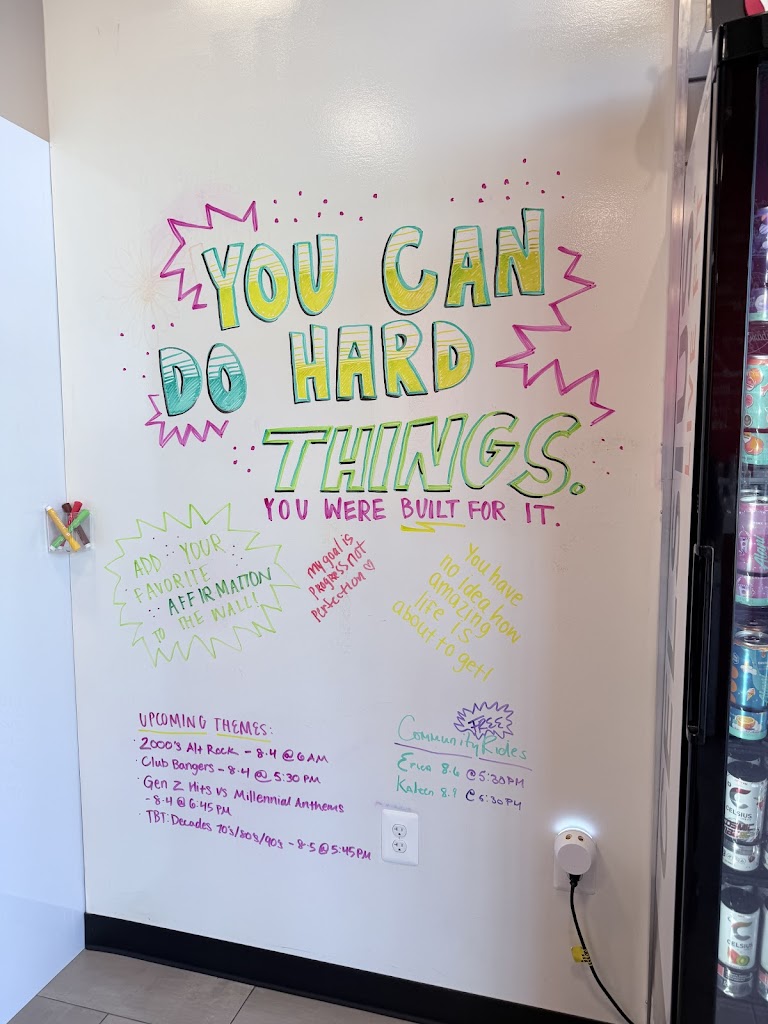 YOU CAN
DO HARD
THINGS.
YOU WERE BUILT FOR IT.
ADD YOUR
FAVORITE
AFFIRMATION
TO THE WALL!
my goal is
progress not
perfection ♡
You have
no idea how
amazing
life is
about to get!
UPCOMING THEMES:
· 2000's Alt Rock - 8.4 @ 6 AM
· Club Bangers - 8.4 @ 5:30 PM
· Gen Z Hits vs Millennial Anthems
- 8.4 @ 6:45 PM
· TBT: Decades 70s/80s/90s - 8.5 @ 5:45 PM
FREE
Community Rides
Erica 8.6 @ 5:30 PM
Kaleen 8.9 @ 5:30 PM
CELSIUS
CELSIUS